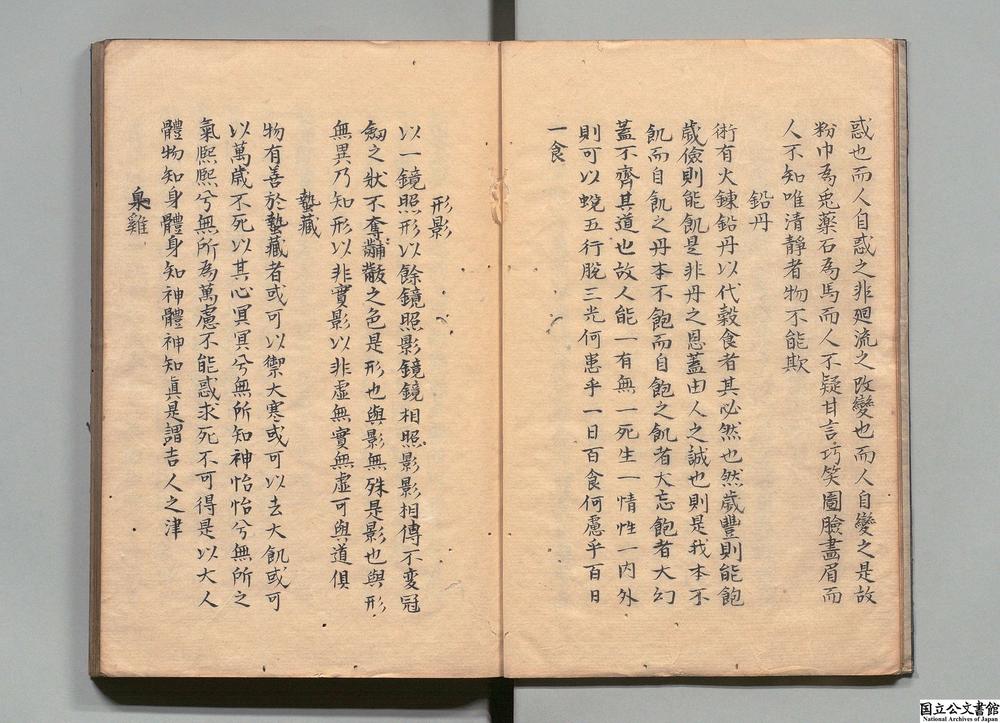 惑也而人自惑之非廻流之改變也而人自變之是故
粉巾為兎藥石為馬而人不疑甘言巧笑圖臉畫眉而
人不知唯清靜者物不能欺
鉛丹
術有火鍊鉛丹以代穀食者其必然也然歲豐則能飽
歲儉則能飢是非丹之恩蓋由人之誠也則是我本不
飢而自飢之丹本不飽而自飽之飢者大忘飽者大幻
蓋不齊其道也故人能一有無一死生一情性一内外
則可以蛻五行脫三光何患乎一日百食何慮乎百日
一食
形影
以一鏡照形以餘鏡照影鏡鏡相照影影相傳不変冠
劔之狀不奪黼黻之色是形也與影無殊是影也與形
無異乃知形以非實影以非虛無實無虛可與道俱
蟄藏
物有善於蟄藏者或可以禦大寒或可以去大飢或可
以萬歲不死以其心冥冥兮無所知神怡怡兮無所之
氣熙熙兮無所為萬慮不能惑求死不可得是以大人
體物知身體身知神體神知眞是謂吉人之津
梟雞
国立公文書館
National Archives of Japan